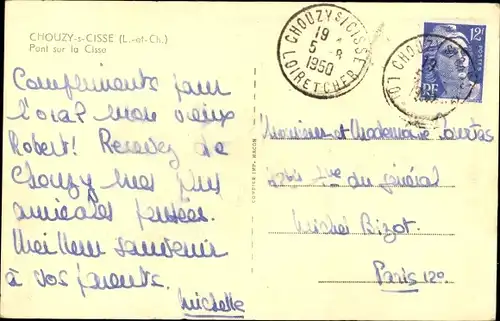 CHOUZY-s-CISSE (L.-et-Ch.)
Pont sur la Cisse
Compliments pour
l'oral mon vieux
Robert! Recevez de
Chouzy mes plus
amicales pensées.
Meilleur souvenir
à vos parents.
Michelle
COMBIER IMP. MACON
CHOUZY S/CISSE
19
5-8
1950
LOIR ET CHER
12F
RF
Monsieur et Madame
rue du général
Michel Bizot.
Paris 12e